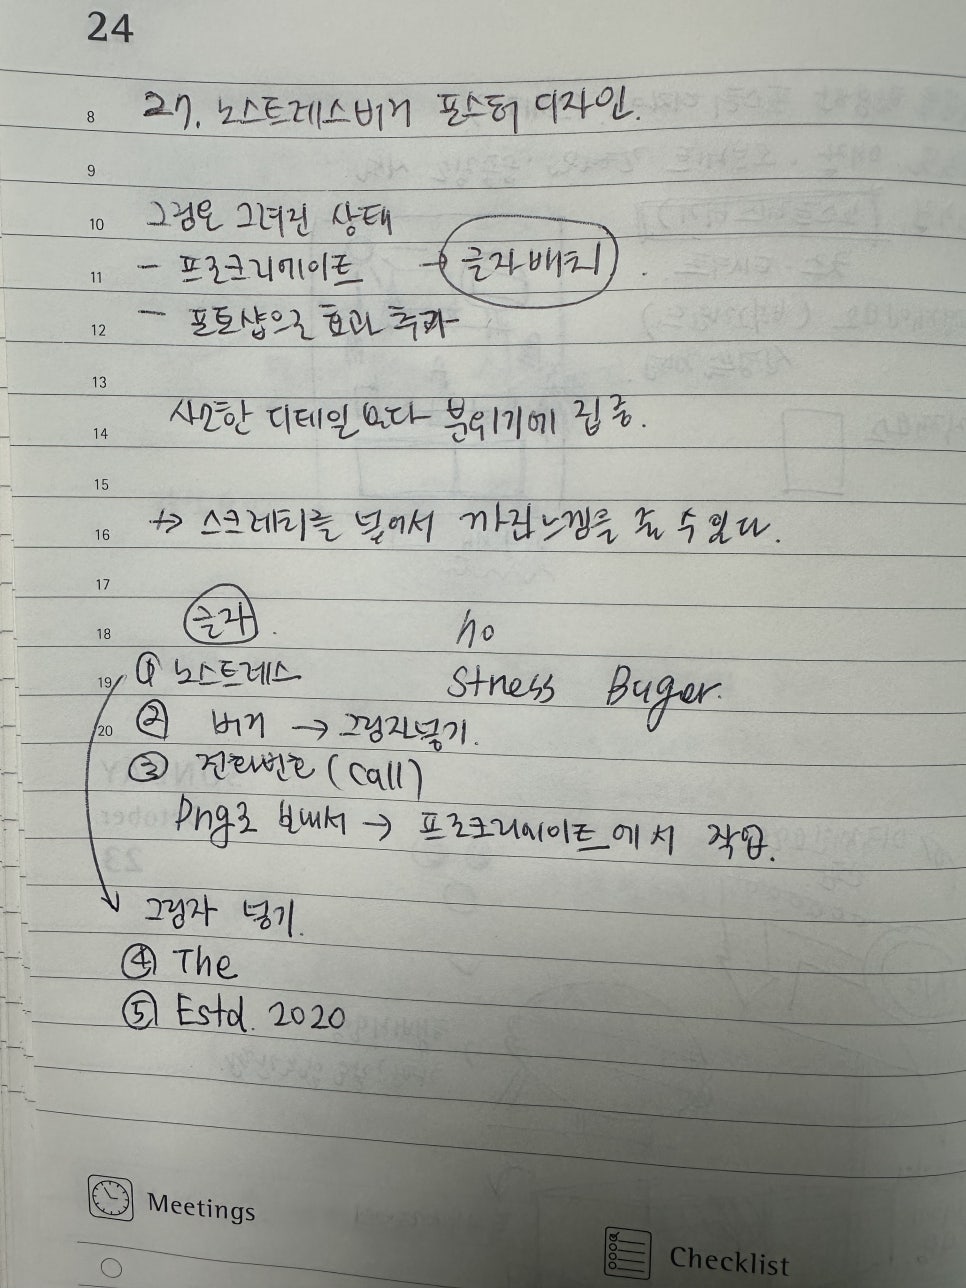 24
8 27. 노스트레스버거 포스터 디자인.
9
10 그림은 그려진 상태
11 - 프로크리에이트 → 글자배치.
12 - 포토샵으로 효과 추가
13
14 사소한 디테일보다 분위기에 집중.
15
16 → 스크래치를 넣어서 까진느낌을 줄 수 있다.
17
18 글자. no
19 ① 노스트레스 Stress Buger.
20 ② 버거 → 그림자넣기.
③ 전화번호 (call)
png로 보내서 → 프로크리에이트에서 작업.
그림자 넣기.
④ The
⑤ Estd. 2020
Meetings
Checklist